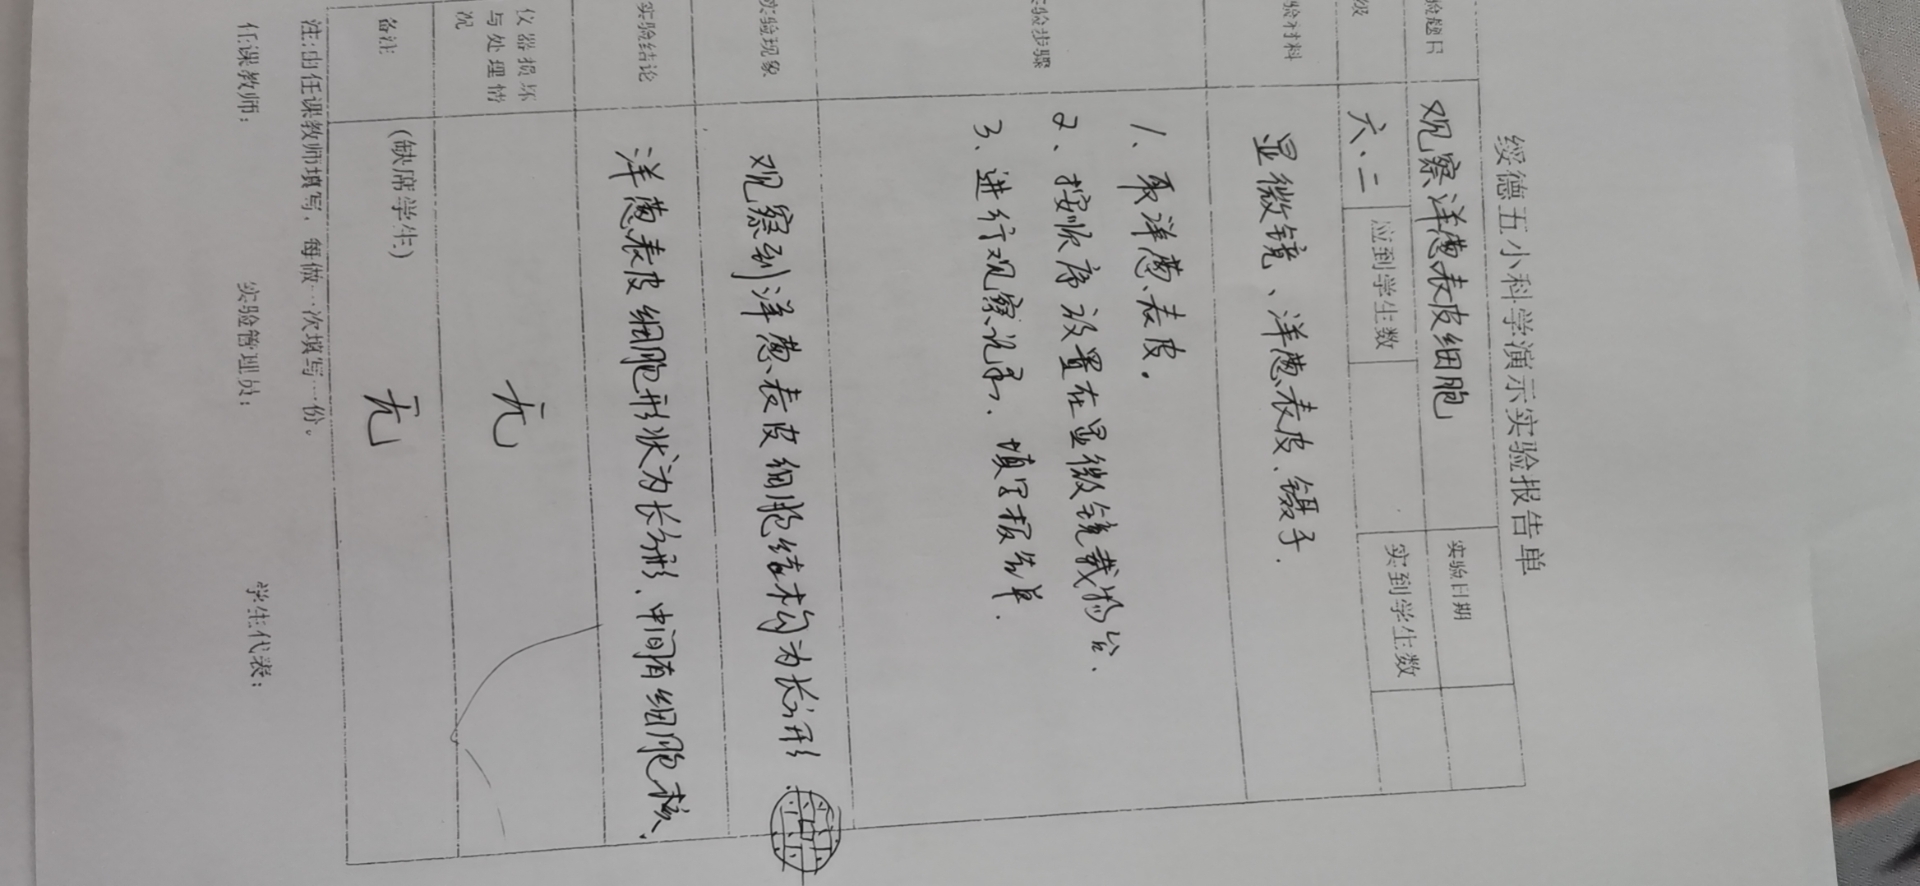 绥德五小科学演示实验报告单
验题目 观察洋葱表皮细胞 实验日期
级 六、二 应到学生数 实到学生数
验材料 显微镜、洋葱表皮、镊子.
验步骤 1、取洋葱表皮。
2、按顺序放置在显微镜载物台.
3、进行观察记录、填写报告单.
实验现象 观察到洋葱表皮细胞结构为长方形
实验结论 洋葱表皮细胞形状为长方形、中间有细胞核、
仪器损坏与处理情况 无
备注 (缺席学生) 无
注:由任课教师填写,每做一次填写一份。
任课教师: 实验管理员: 学生代表: